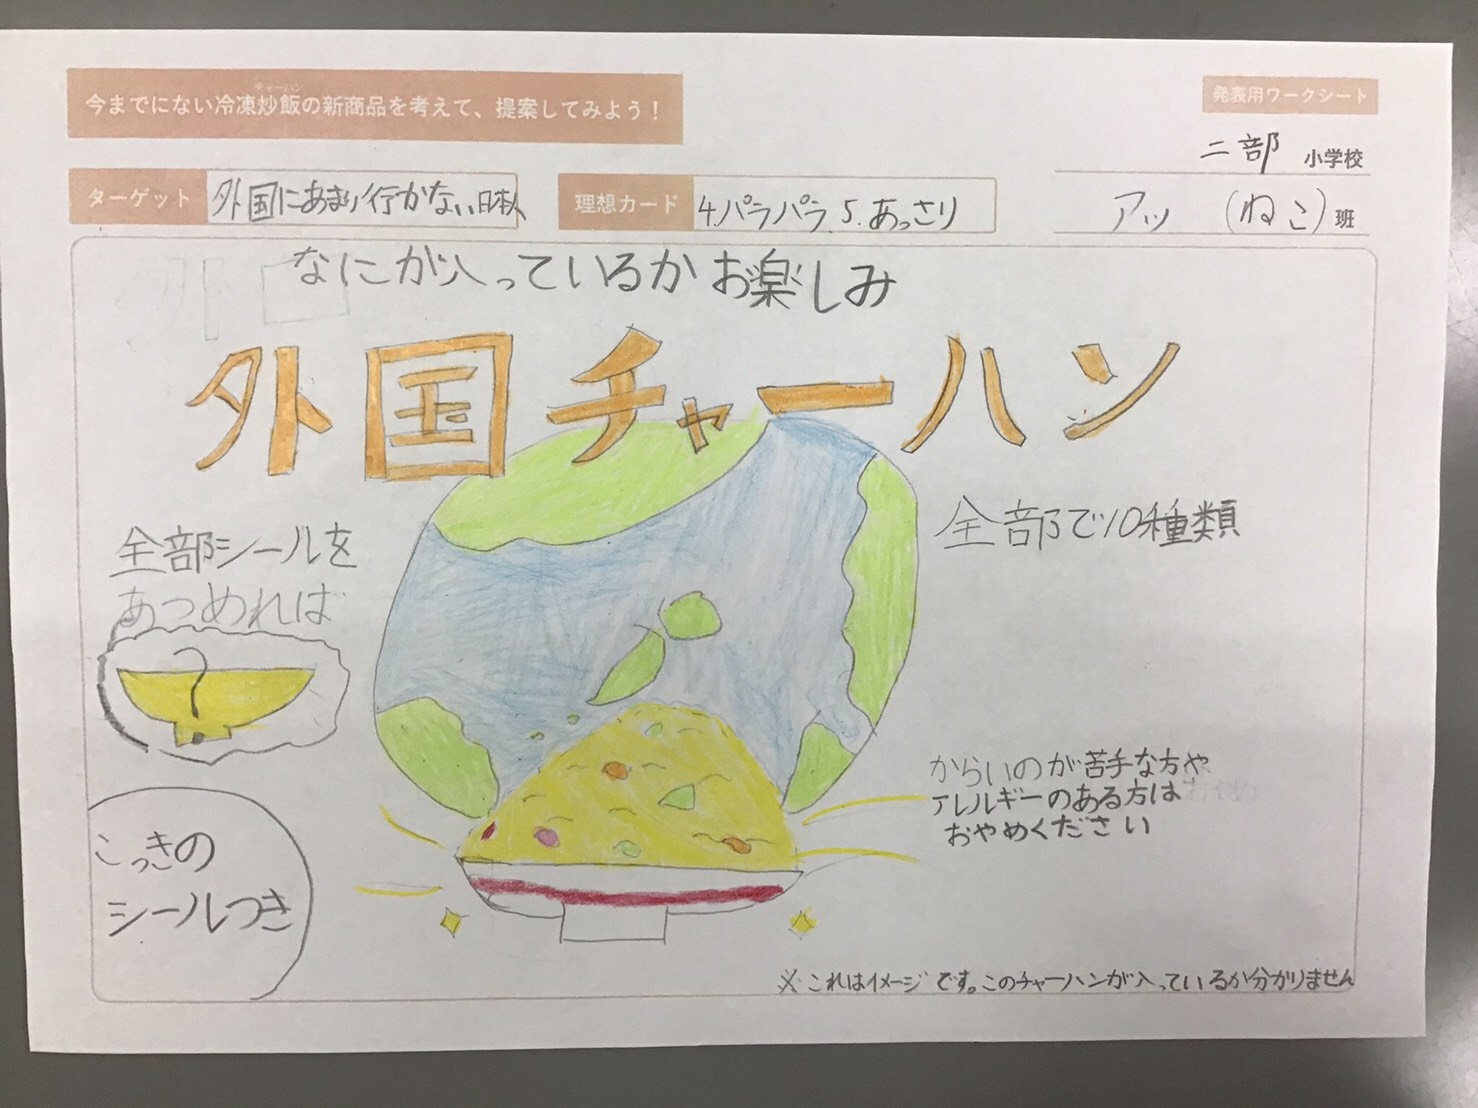 今までにない冷凍炒飯の新商品を考えて、提案してみよう！
チャーハン
発表用ワークシート
二部 小学校
ターゲット 外国にあまり行かない日本人
理想カード 4.パラパラ 5.あっさり
アッ （ねこ）班
なにが入っているかお楽しみ
外国チャーハン
全部シールを
あつめれば
?
全部で10種類
からいのが苦手な方や
アレルギーのある方は
おやめください
こっきの
シールつき
※これはイメージです。このチャーハンが入っているか分かりません